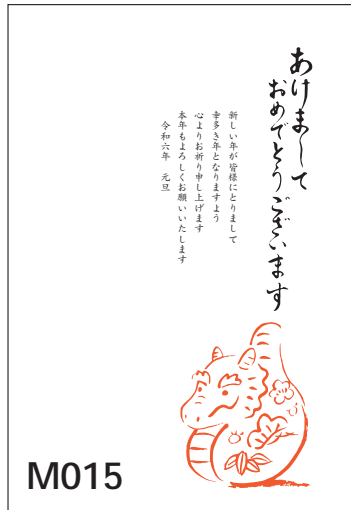 あけまして
おめでとうございます
新しい年が皆様にとりまして
幸多き年となりますよう
心よりお祈り申し上げます
本年もよろしくお願いいたします
令和六年　元旦
M015